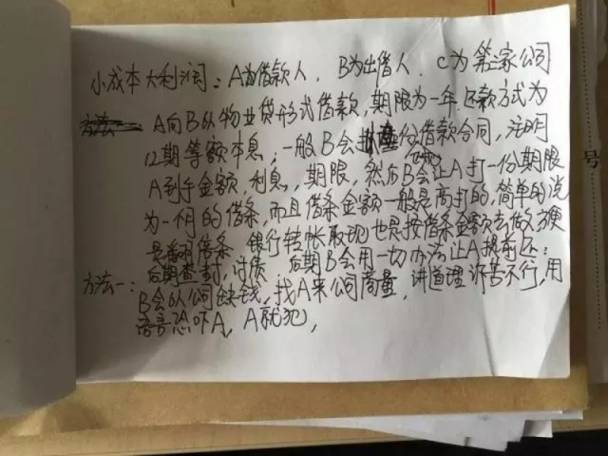 小成本大利润：A为借款人，B为出借人，C为第三家公司
A向B以物业贷形式借款，期限为一年还款方式为
12期等额本息，一般B会 份借款合同，注明
A到手金额，利息，期限，然而B会让A打一份期限
为一个月的借条，而且借条金额一般是高打的，简单的说
是翻倍条，银行转帐取现也是按借条金额去做方便
后期查封，讨债，后期B会用一切办法让A提前还：
方法一：B会以公司缺钱，找A来公司商量，讲道理诉苦不行，用
语言恐吓A，A就犯，
号